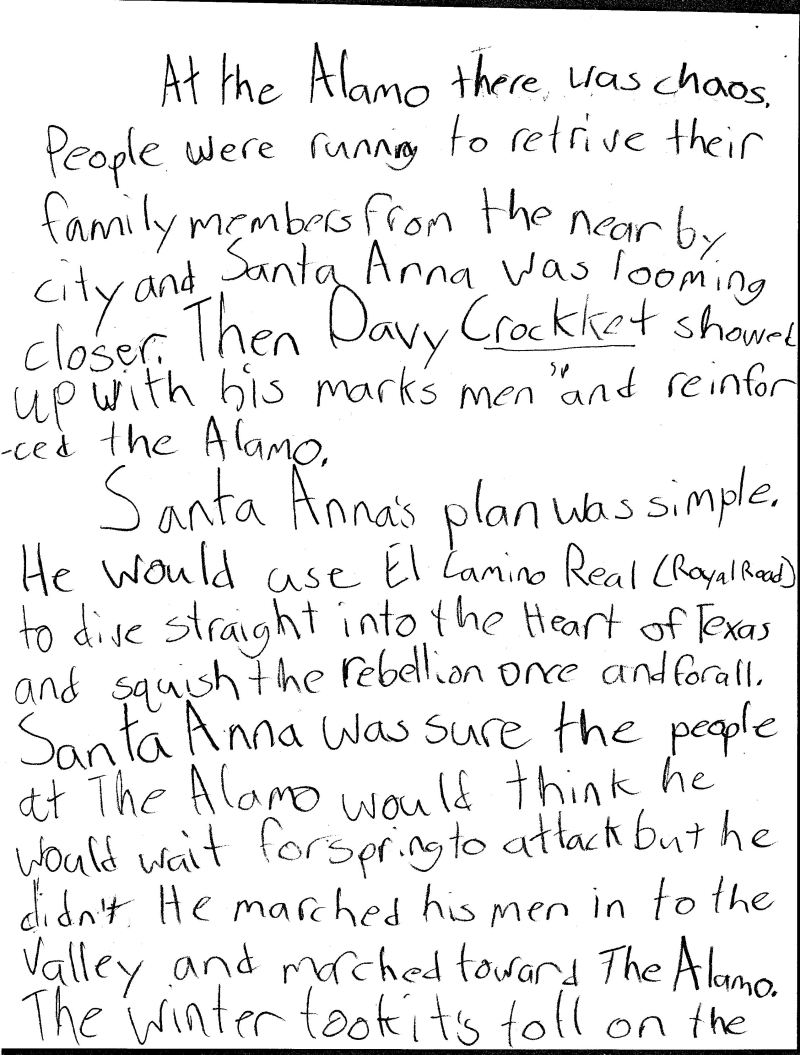 At the Alamo there was chaos.
People were running to retrive their
family members from the near by
city and Santa Anna was looming
closer. Then Davy Crockket showed
up with his marks men sp and reinfor
-ced the Alamo.
Santa Anna's plan was simple.
He would use El Camino Real (Royal Road)
to dive straight into the Heart of Texas
and squish the rebellion once and for all.
Santa Anna was sure the people
at The Alamo would think he
would wait for spring to attack but he
didn't. He marched his men in to the
Valley and marched toward The Alamo.
The winter took it's toll on the